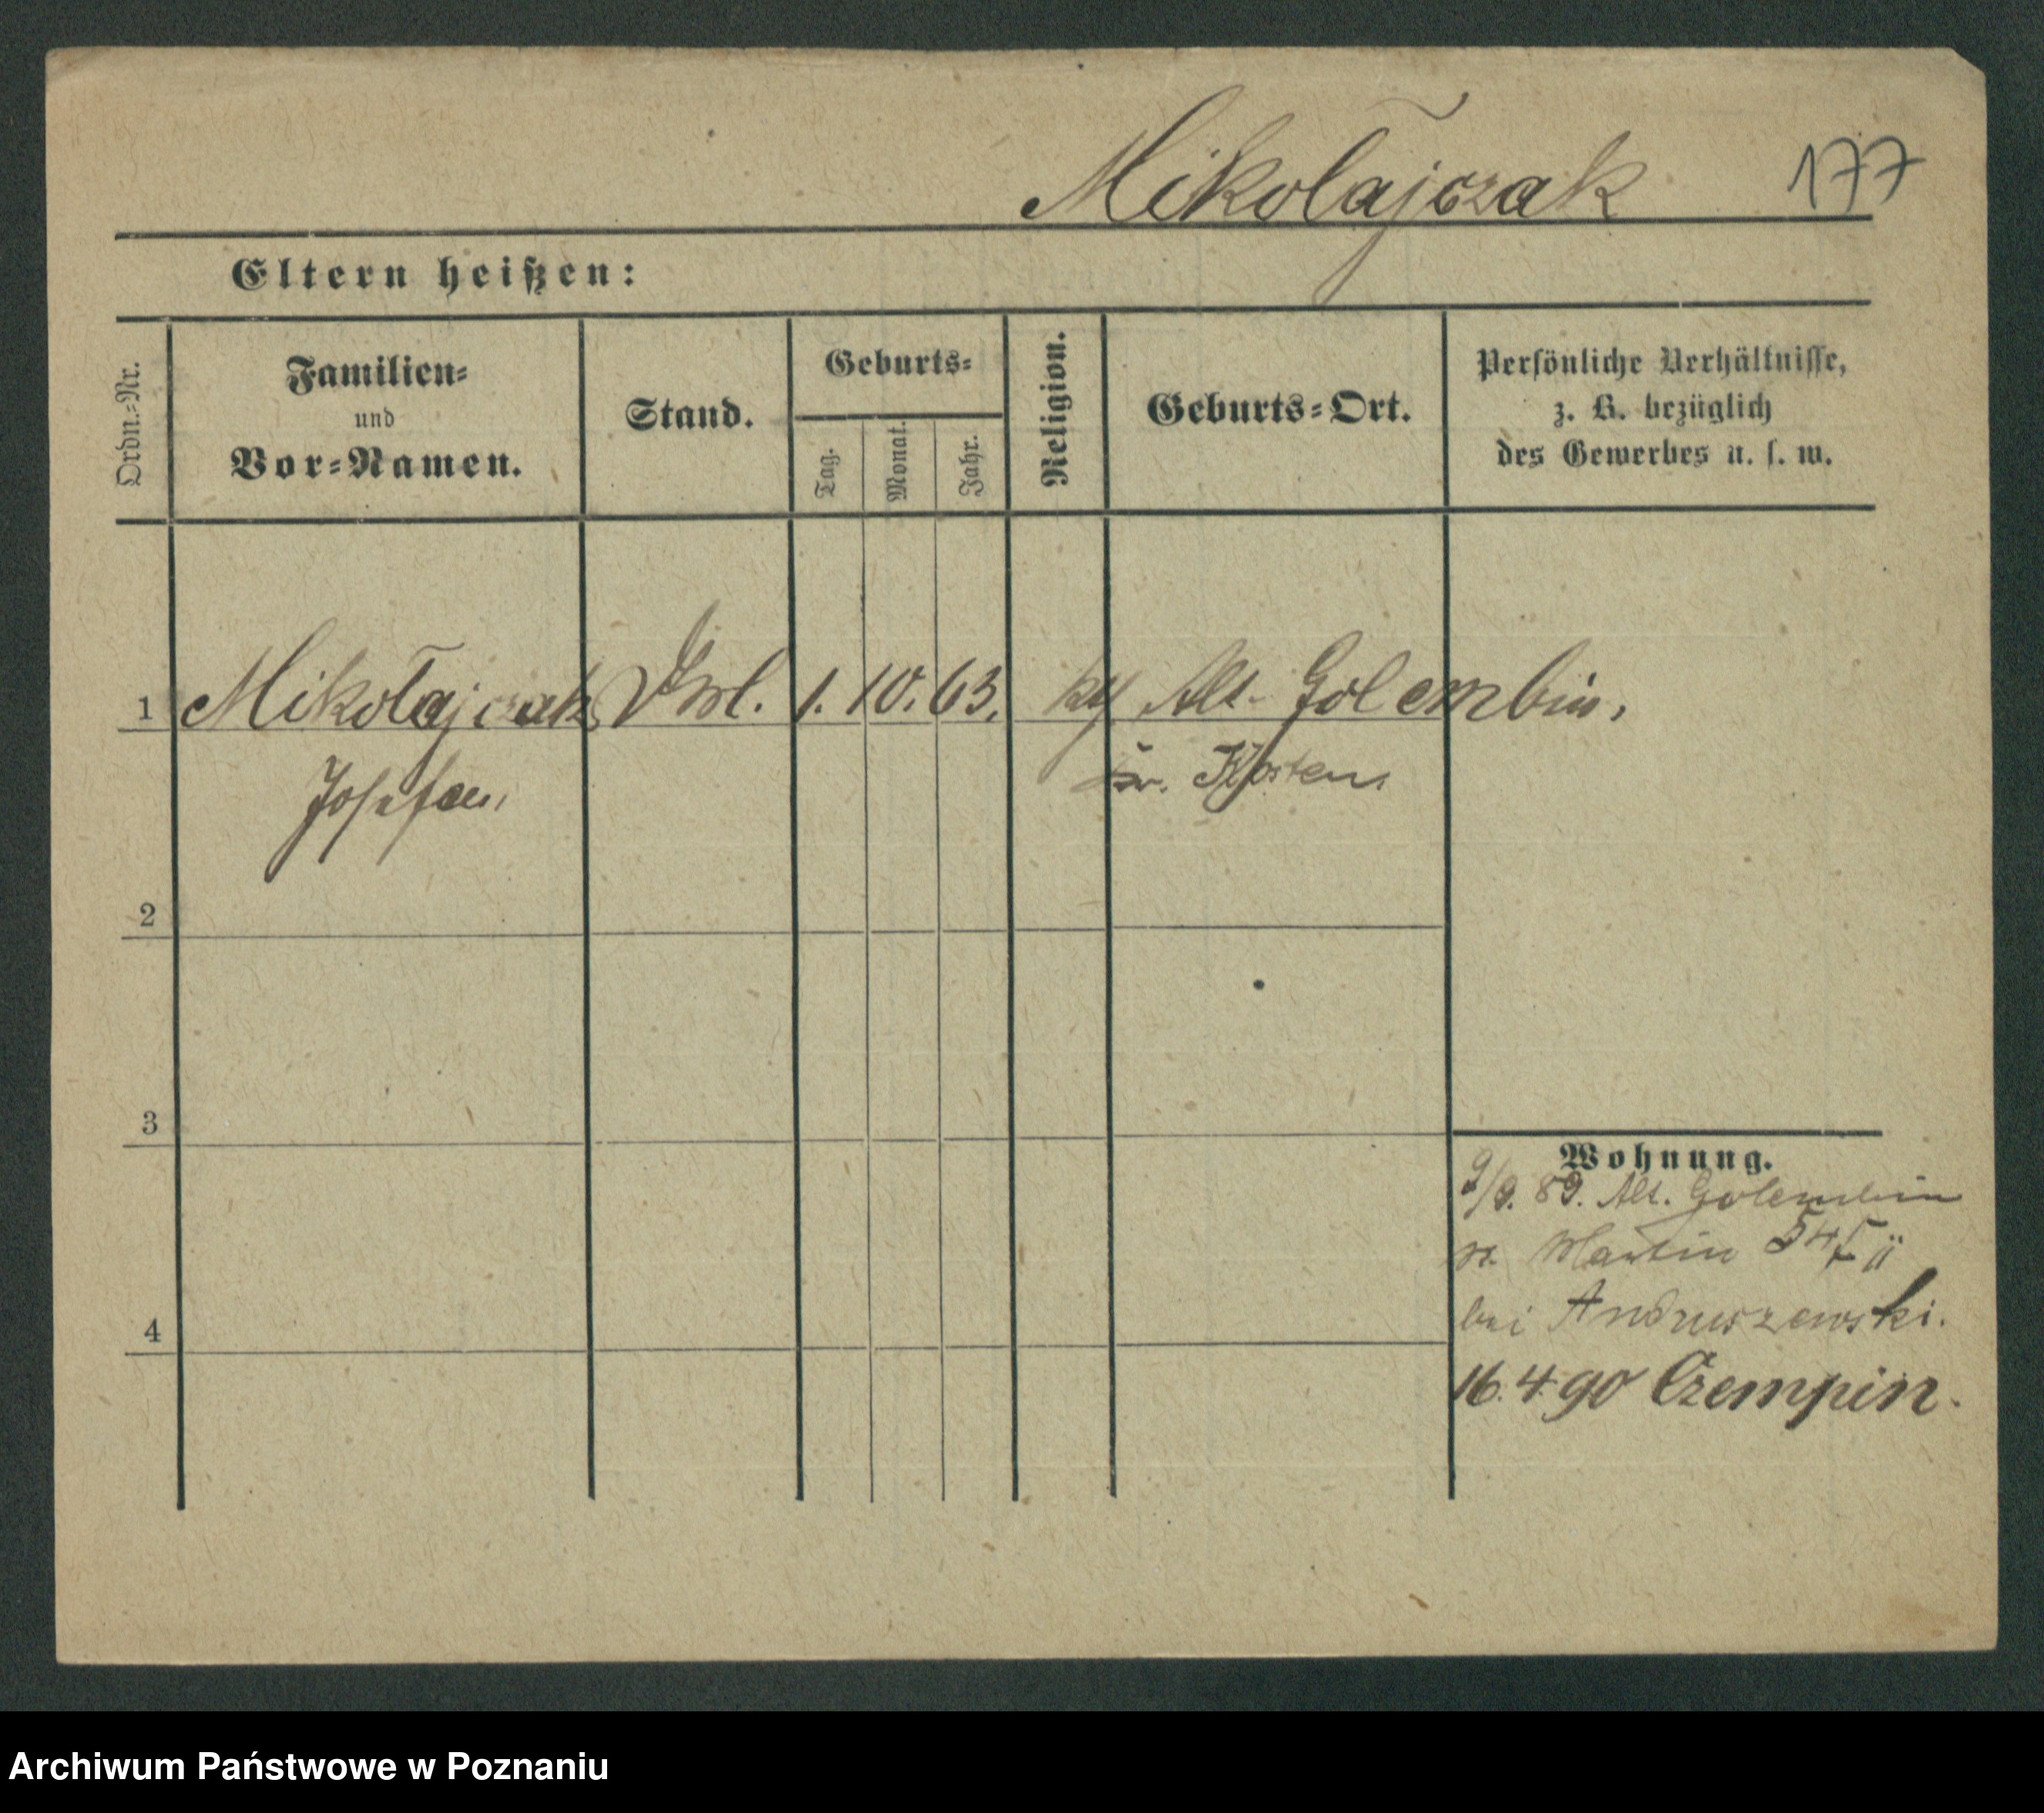 Mikolajczak 177
Eltern heißen:
Ordn.=Nr.
Familien=
und
Vor=Namen.
Stand.
Geburts=
Tag.
Monat.
Jahr.
Religion.
Geburts=Ort.
Persönliche Verhältnisse,
z. B. bezüglich
des Gewerbes u. s. w.
1 Mikolajczak 1. 10. 63. Alt- Golembin,
Josefa, Kr. Kosten
2
3
4
Wohnung.
9/9. 89. Alt. Golembin
Martin 54
bei Andruszewski.
16. 4. 90 Czempin.
Archiwum Państwowe w Poznaniu